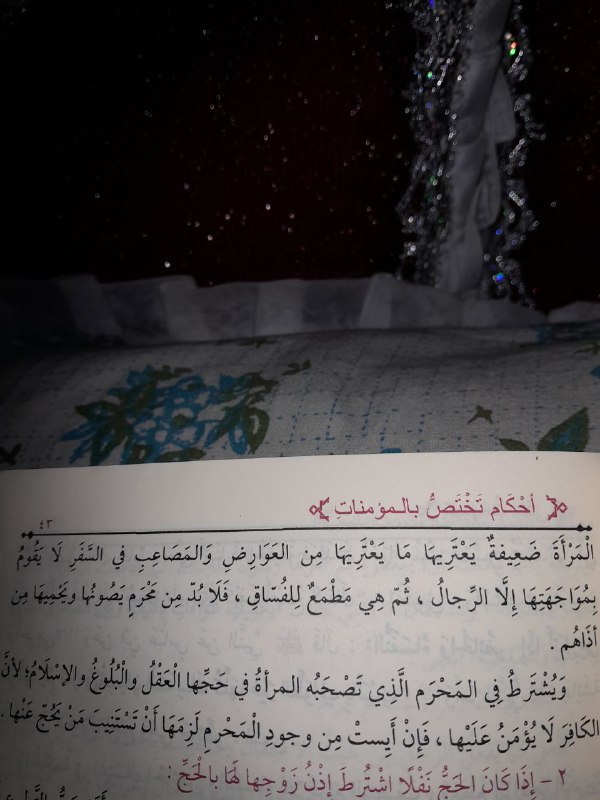 أحْكَام تَخْتَصُّ بالـمؤمناتِ
٤٣
الْمَرْأَةَ ضَعِيفةٌ يَعْتَرِيهَا مَا يَعْتَرِيهَا مِن العَوَارِضِ وَالمَصَاعِبِ فِي السَّفَرِ لَا يَقُومُ
بِمُوَاجَهَتِهَا إِلَّا الرِّجالُ ، ثُمّ هِي مَطْمَعٌ لِلفُسّاقِ ، فَلَا بُدّ مِن مَحْرَمٍ يَصُونُها ويَحْمِيهَا مِن
أذَاهُم .
وَيُشْتَرطُ فِي المَحْرَم الَّذِي تَصْحَبُه المرأةُ فِي حَجِّها الْعَقْلُ والْبُلُوغُ والإسْلَامُ؛ لأنَّ
الكَافِرَ لَا يُؤْمَنُ عَلَيْها ، فَإِنْ أَيِستْ مِن وجودِ الْمَحْرمِ لَزِمَهَا أَنْ تَسْتَنِيبَ مَنْ يَحُجّ عَنْها .
٢ – إِذَا كَانَ الحَجُّ نَفْلًا اشْتُرطَ إِذْنُ زَوْجِها لَهَا بالْحَجِّ :